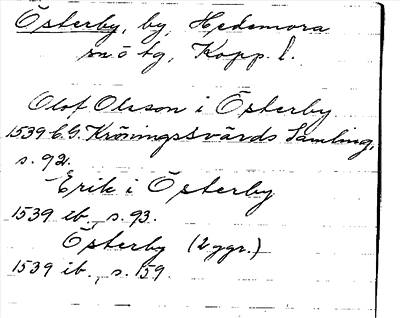 Österby, by, Hedemora
sn ö tg, Kopp. l.
Olof Olsson i Österby
1539 C.G. Kröningssvärds Samling,
s. 92.
Erik i Österby
1539 ib., s. 93.
Österby (2 ggr.)
1539 ib., s. 159.